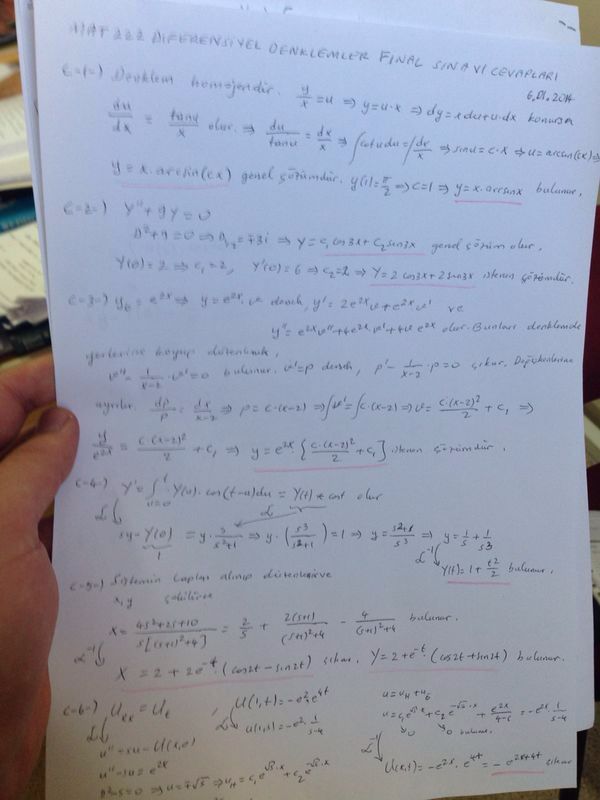 MAT 222 DİFERENSİYEL DENKLEMLER FINAL SINAVI CEVAPLARI
6.01.2014
C-1-) Denklem homojendir. y/x = u ⇒ y = u·x ⇒ dy = x du + u·dx konursa
du/dx = tanu/x olur. ⇒ du/tanu = dx/x ⇒ ∫cotu du = ∫dx/x ⇒ sinu = c·x ⇒ u = arcsin(cx) ⇒
y = x·arcsin(cx) genel çözümdür. y(1) = π/2 ⇒ c=1 ⇒ y = x·arcsinx bulunur.
C-2-) y'' + 9y = 0
D²+9=0 ⇒ D₁,₂ = ∓3i ⇒ y = c₁cos3x + c₂sin3x genel çözüm olur.
Y(0) = 2 ⇒ c₁=2, Y'(0) = 6 ⇒ c₂=2 ⇒ Y = 2cos3x + 2sin3x istenen çözümdür.
C-3-) = e^2x ⇒ y = e^2x·v dersek, y' = 2e^2x v + e^2x v' ve
y'' = e^2x v'' + 4e^2x v' + 4v e^2x olur. Bunları denklemde
yerlerine koyup düzenlersek,
v'' - 1/(x-2)·v' = 0 bulunur. v' = p dersek, p' - 1/(x-2)·p = 0 çıkar. Değişkenlerine
ayrılır. dp/p = dx/(x-2) ⇒ p = c·(x-2) ⇒ ∫v' = ∫c·(x-2) ⇒ v = c·(x-2)²/2 + c₁ ⇒
y/e^2x = c·(x-2)²/2 + c₁ ⇒ y = e^2x·{c·(x-2)²/2 + c₁} istenen çözümdür.
C-4-) Y' = ∫_{u=0}^{t} Y(u)·cos(t-u)du = Y(t) * cost olur
ℒ
sy - Y(0) = y·s/(s²+1) ⇒ y·(s³/(s²+1)) = 1 ⇒ y = (s²+1)/s³ ⇒ y = 1/s + 1/s³
1
ℒ⁻¹ Y(t) = 1 + t²/2 bulunur.
C-5-) Sistemin Laplas alınıp düzenlenirse
x, y çekilirse
X = (4s²+2s+10)/(s[(s+1)²+4]) = 2/s + 2(s+1)/((s+1)²+4) - 4/((s+1)²+4) bulunur.
ℒ⁻¹
X = 2 + 2e^-t·(cos2t - sin2t) çıkar. Y = 2 + e^-t·(cos2t + sin2t) bulunur.
C-6-) Uxx = Ut, U(1,t) = -e²·e^4t
ℒ u'' = su - U(x,0) ℒ u(1,s) = -e²·1/(s-4)
u'' - su = e^2x
D²-s=0 ⇒ u = ∓√s ⇒ uH = c₁e^√s·x + c₂e^-√s·x
u = uH + uö
u = c₁e^√s·x + c₂e^-√s·x + e^2x/(4-s) = -e^2x·1/(s-4)
0 0 bulunur.
ℒ⁻¹
U(x,t) = -e^2x·e^4t = -e^2x+4t çıkar